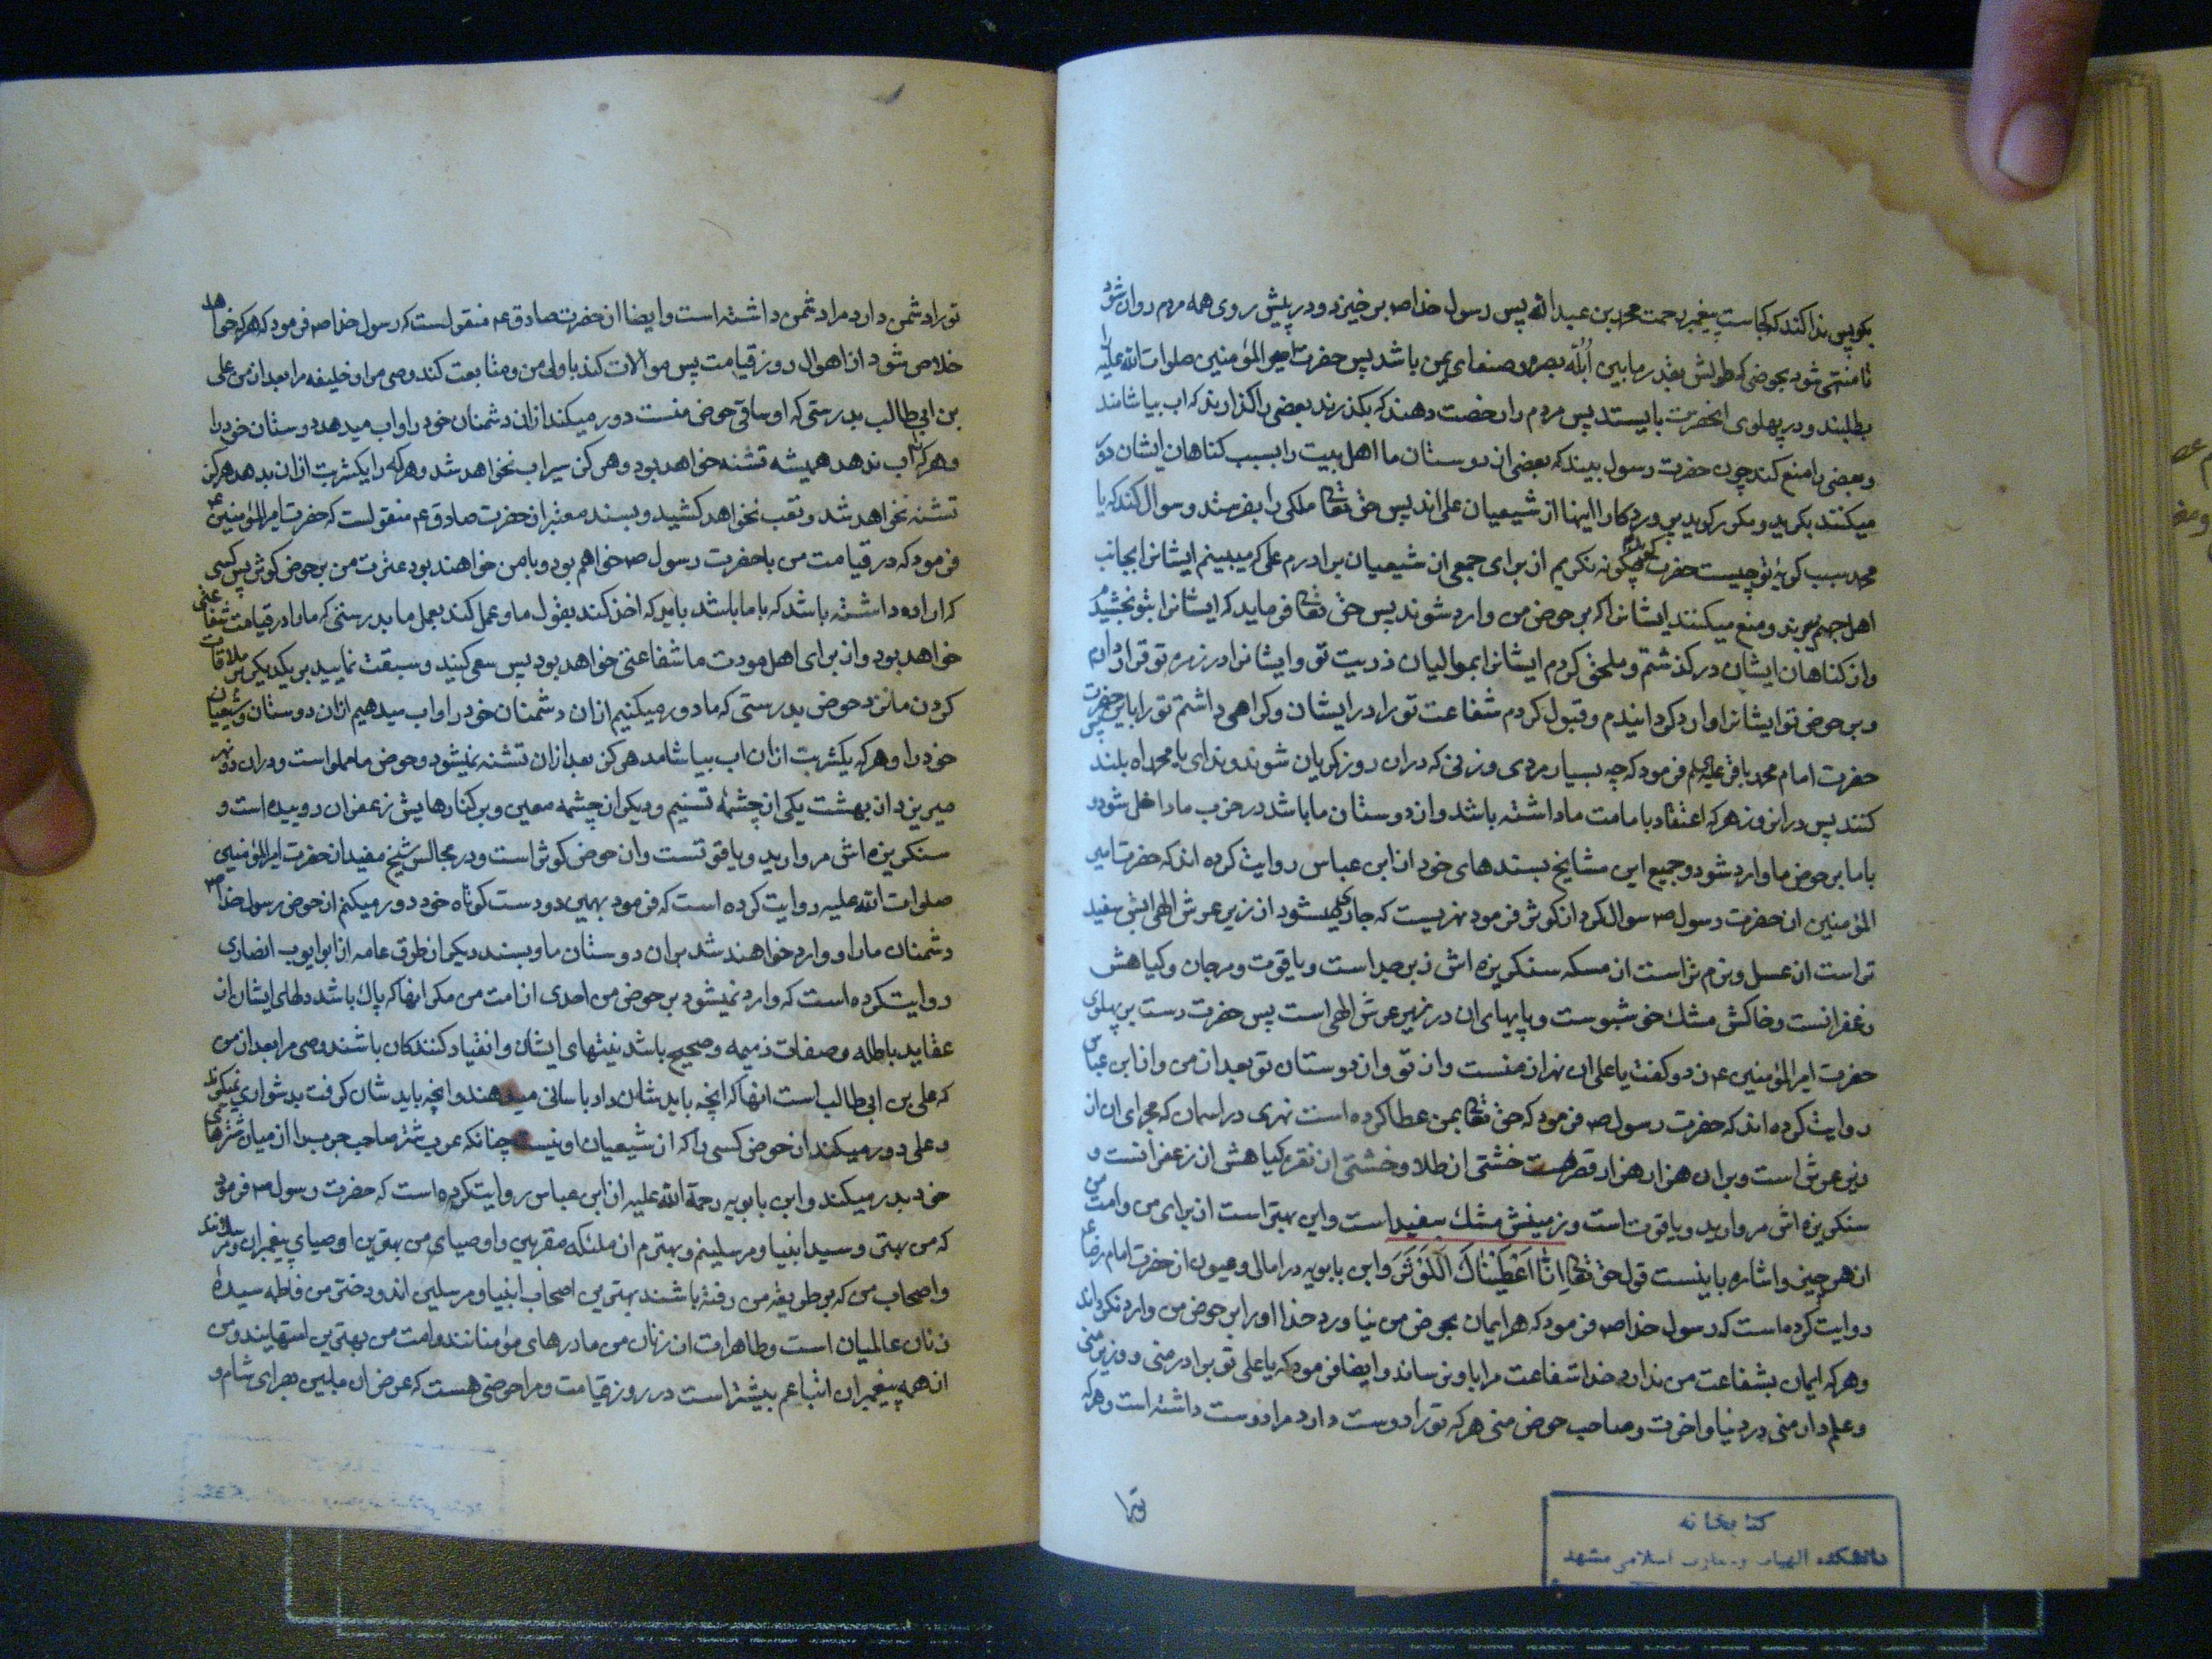 بگو پس ندا کند که کجاست پیغمبر رحمت محمد بن عبدالله پس رسول خدا ص برخیزد و در پیش روی همه مردم روان شود
تا منتهی شود بحوضی که طولش بقدر مابین اُبُلّه بصره و صنعای یمن باشد پس حضرت امیر المؤمنین صلوات الله علیه را
بطلبند و در پهلوی انحضرت بایستد پس مردم را رخصت دهند که بگذرند بعضی را گذارند که اب بیاشامند
و بعضی را منع کنند چون حضرت رسول بیند که بعضی از دوستان ما اهل بیت را بسبب گناهان ایشان دور
میکنند بگرید و مکرر گوید پروردگارا اینها از شیعیان علی اند پس حق تعالی ملکی را بفرستد و سوال کند که یا
محمد سبب گریه تو چیست حضرت گوید چگونه نگریم از برای جمعی از شیعیان برادرم علی که میبینم ایشانرا بجانب
اهل جهنم میبرند و منع میکنند ایشانرا که بر حوض من وارد شوند پس حق تعالی فرماید که ایشانرا بتو بخشیدم
و از گناهان ایشان درگذشتم و ملحق کردم ایشانرا بموالیان ذریت تو و ایشانرا در زمره تو قرار دادم
و بر حوض تو ایشانرا وارد گردانیدم و قبول کردم شفاعت تو را در ایشان و گرامی داشتم تو را باین پس حضرت
حضرت امام محمد باقر علیه السلم فرمود که چه بسیار مردی و زنی که دران روز گریان شوند و ندای یا محمداه بلند
کنند پس درانروز هر که اعتقاد بامامت ما داشته باشد و از دوستان ما باشد در حزب ما داخل شود و
با ما بر حوض ما وارد شود و جمیع این مشایخ بسندهای خود از ابن عباس روایت کرده اند که حضرت امیر
المؤمنین از حضرت رسول ص سوال کرد از کوثر فرمود نهریست که جاری میشود از زیر عرش الهی ابش سفید
تر است از عسل و نرم تر است از مسکه سنگریزه اش زبرجد است و یاقوت و مرجان و گیاهش
زعفرانست و خاکش مشک خوشبوست و پایهای ان در زیر عرش الهی است پس حضرت دست بر پهلوی
حضرت امیر المؤمنین ع زد و گفت یا علی ان نهر از منست و از تو و از دوستان تو بعد از من و از ابن عباس
روایت کرده اند که حضرت رسول ص فرمود که حق تعالی بمن عطا کرده است نهری در اسمان که مجرای ان از
زیر عرش است و بران هزار هزار قصر هست خشتی از طلا و خشتی از نقره گیاهش از زعفرانست و
سنگریزه اش مروارید و یاقوت است و زمینش مشک سفید است و این بهتر است از برای من و امت من
از هر چیز و اشاره باینست قول حق تعالی اِنّا اَعْطَیْناكَ الْکَوْثَرَ و ابن بابویه در امالی و عیون از حضرت امام رضا ع
روایت کرده است که رسول خدا ص فرمود که هر ایمان بحوض من نیاورد خدا او را بر حوض من وارد نگرداند
و هر که ایمان بشفاعت من ندارد خدا شفاعت مرا باو نرساند و ایضا فرمود که یا علی تو برادر منی و وزیر منی
و علمدار منی در دنیا و اخرت و صاحب حوض منی هر که تو را دوست دارد مرا دوست داشته است و هر که
تو را
کتابخانه
دانشکده الهیات و معارف اسلامی مشهد
تو را دشمن دارد مرا دشمن داشته است و ایضا از حضرت صادق ع منقولست که رسول خدا ص فرمود که هر که خواهد
خلاص شود از اهوال روز قیامت پس موالات کند با ولی من و متابعت کند وصی مرا و خلیفه مرا بعد از من علی
بن ابی طالب بدرستی که او ساقی حوض منست دور میکند از ان دشمنان خود را و اب میدهد دوستان خود را
و هر که را اب ندهد همیشه تشنه خواهد بود و هرگز سیراب نخواهد شد و هر که را یکشربت از ان بدهد هرگز
تشنه نخواهد شد و تعب نخواهد کشید و بسند معتبر از حضرت صادق ع منقولست که حضرت امیر المؤمنین ع
فرمود که در قیامت من با حضرت رسول ص خواهم بود و با من خواهند بود عترت من بر حوض کوثر پس کسی
که اراده داشته باشد که با ما باشد باید که اخذ کند بقول ما و عمل کند بعمل ما بدرستی که ما را در قیامت شفاعتی
خواهد بود و از برای اهل مودت ما شفاعتی خواهد بود پس سعی کنید و سبقت نمایید بر یکدیگر در ملاقات
کردن ما نزد حوض بدرستی که ما دور میکنیم از ان دشمنان خود را و اب میدهیم از ان دوستان و شیعیان
خود را و هر که یکشربت از ان اب بیاشامد هرگز بعد از ان تشنه نمیشود و حوض ما مملو است و در ان دو نهر
میریزد از بهشت یکی از چشمه تسنیم و دیگر از چشمه معین و بر کنارهایش زعفران روییده است و
سنگریزه اش مروارید و یاقوتست و ان حوض کوثر است و در مجالس شیخ مفید از حضرت امیر المؤمنین
صلوات الله علیه روایت کرده است که فرمود بهمین دو دست کوتاه خود دور میکنم از حوض رسول خدا ص
دشمنان ما را و وارد خواهند شد بران دوستان ما و بسند دیگر از طرق عامه از ابو ایوب انصاری
روایت کرده است که وارد نمیشود بر حوض من احدی از امت من مگر انها که پاک باشد دلهای ایشان از
عقاید باطله و صفات ذمیمه و صحیح باشد نیتهای ایشان و انقیاد کنندگان باشند وصی مرا بعد از من
که علی بن ابی طالب است انها که انچه باید شان داد باسانی میدهند و انچه باید شان گرفت بدشواری نمیگیرند
و علی دور میکند از حوض کسی را که از شیعیان او نیست چنانکه عرب شتر صاحب جرب را از میان شترهای
خود بدر میکند و ابن بابویه رحمة الله علیه از ابن عباس روایت کرده است که حضرت رسول ص فرمود
که من بهتر و سید انبیا و مرسلینم و بهترم از ملئکه مقربین و اوصیای من بهترین اوصیای پیغمبران و مرسلانند
و اصحاب من که بر طریقه من رفته باشند بهترین اصحاب انبیا و مرسلین اند و دختر من فاطمه سیده
زنان عالمیان است و طاهرات از زنان من مادرهای مؤمنانند و امت من بهترین امتهایند و من
از همه پیغمبران اتباعم بیشتر است در روز قیامت و مرا حوضی هست که عرض ان مابین بصرای شام و